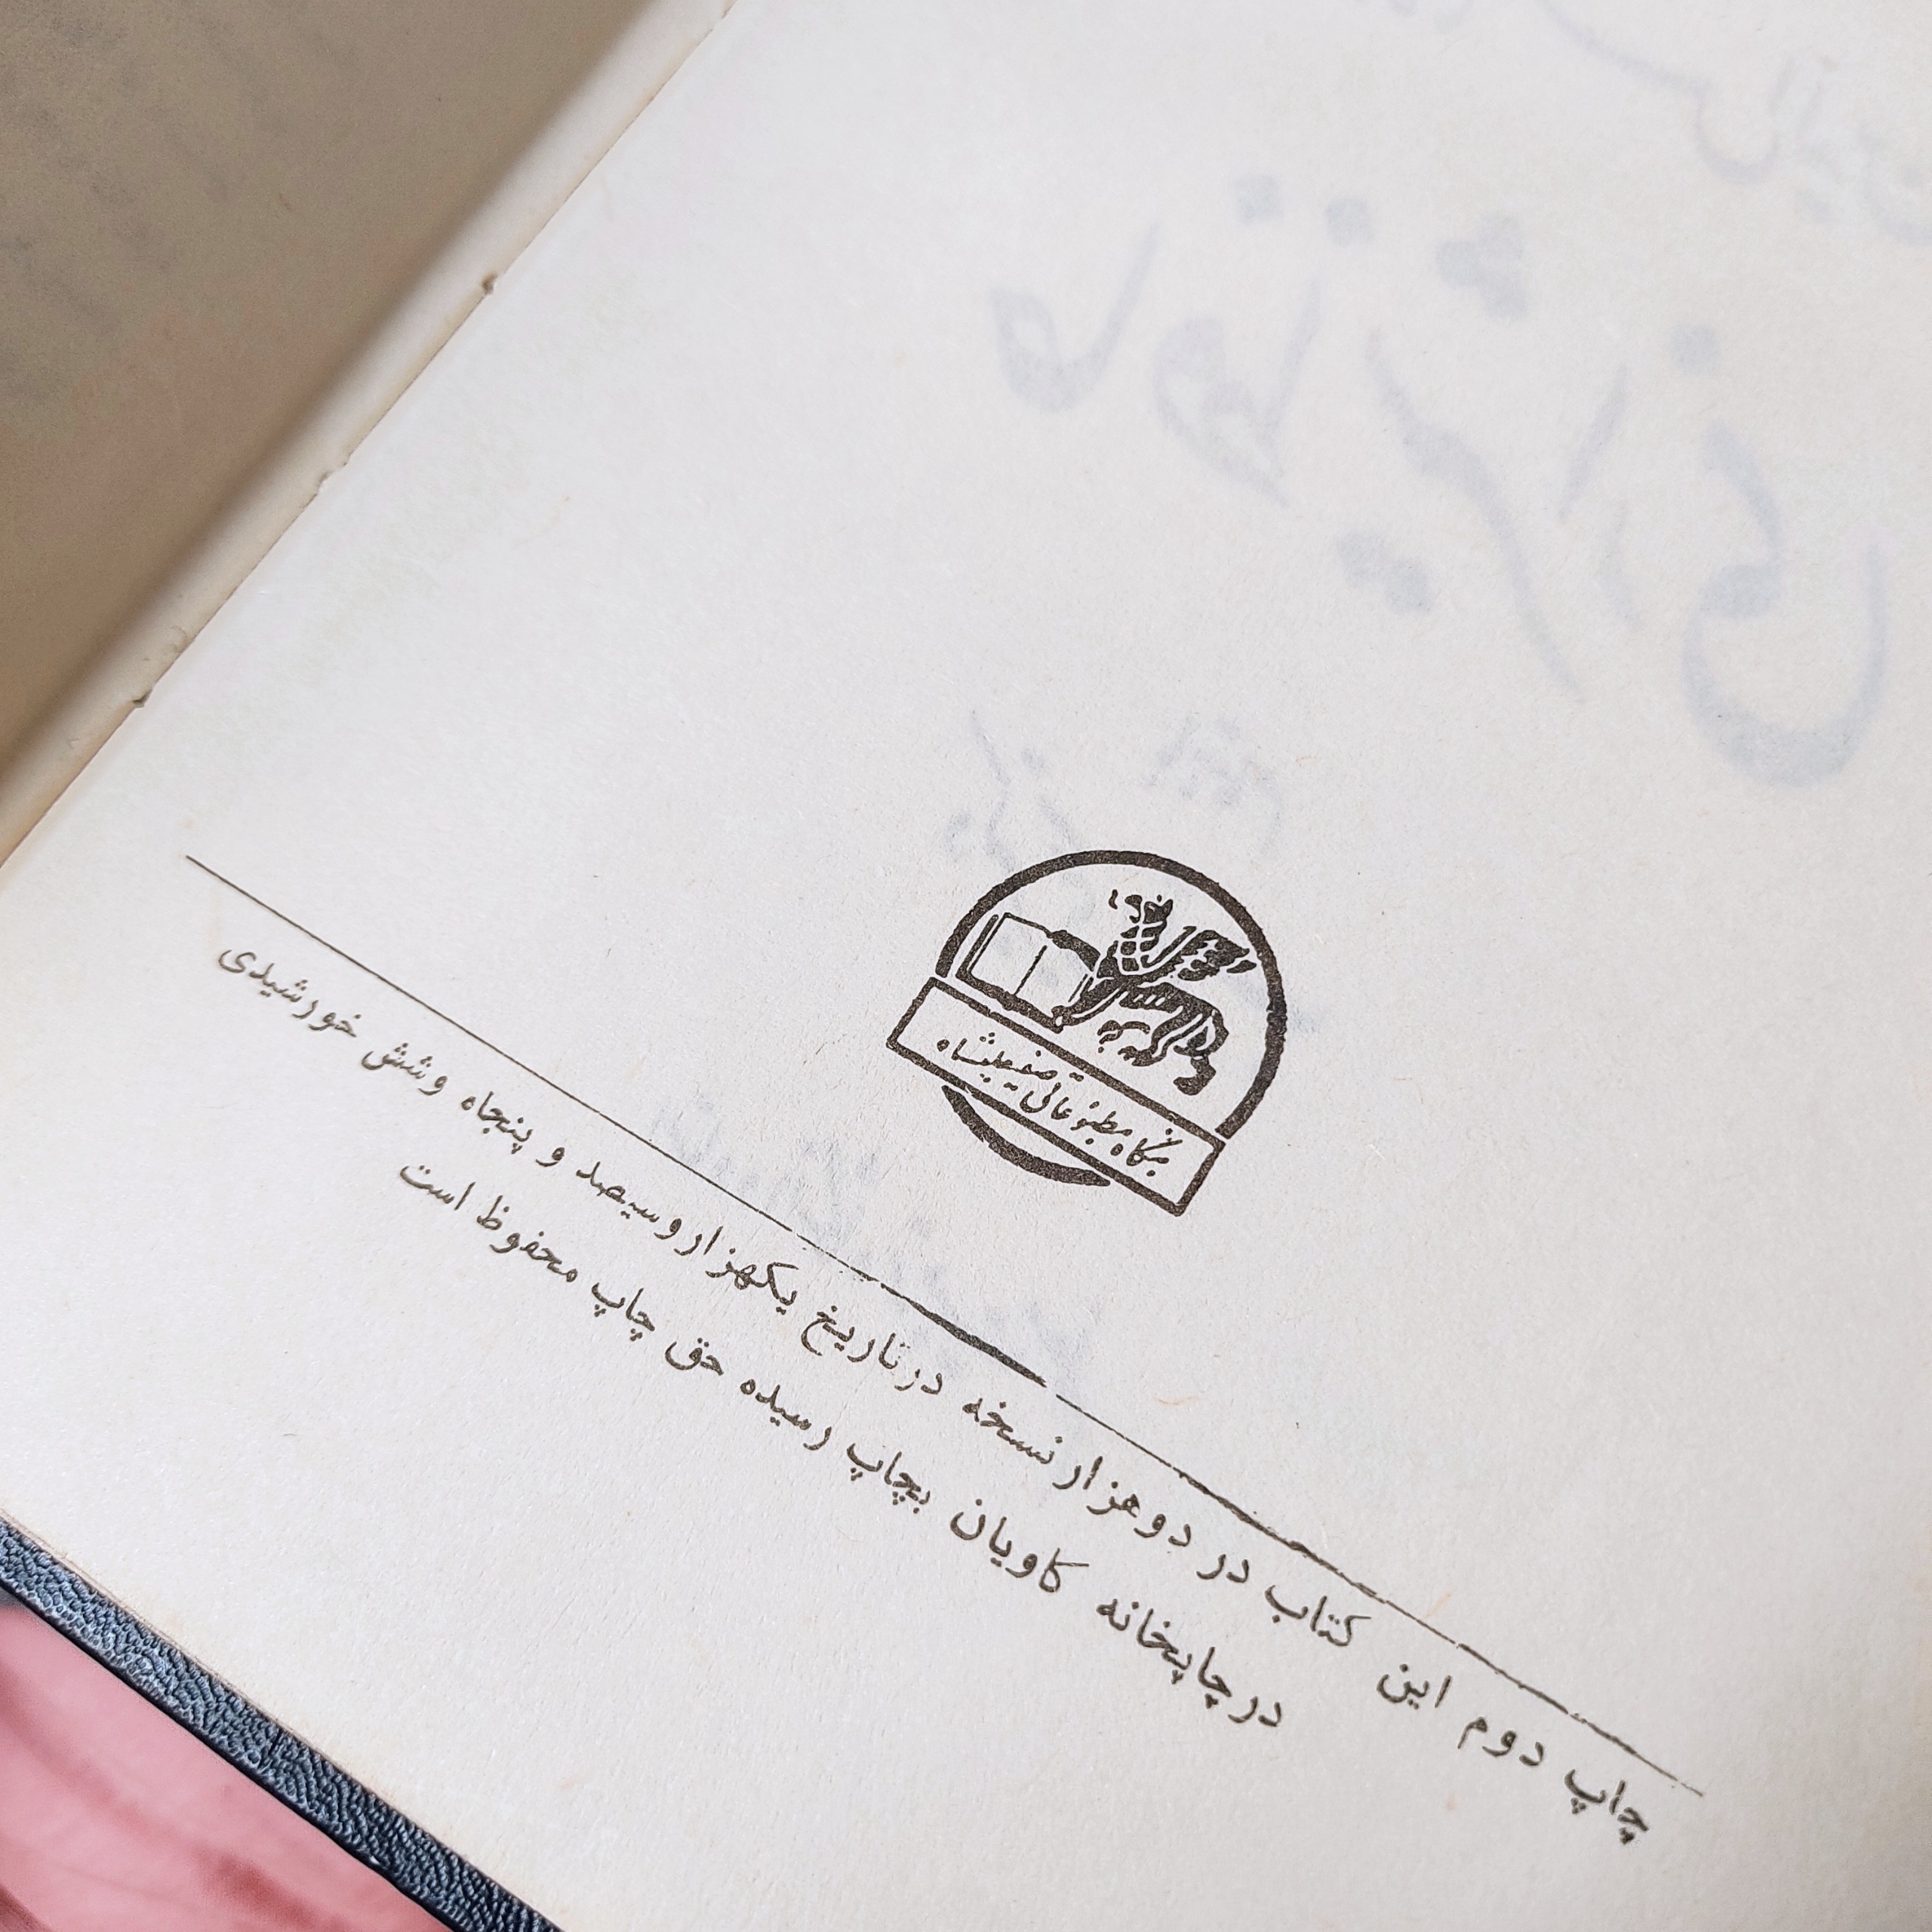 بنگاه مطبوعاتی صفیعلیشاه
چاپ دوم این کتاب در دوهزار نسخه در تاریخ یکهزار و سیصد و پنجاه وشش خورشیدی
در چاپخانه کاویان بچاپ رسیده حق چاپ محفوظ است